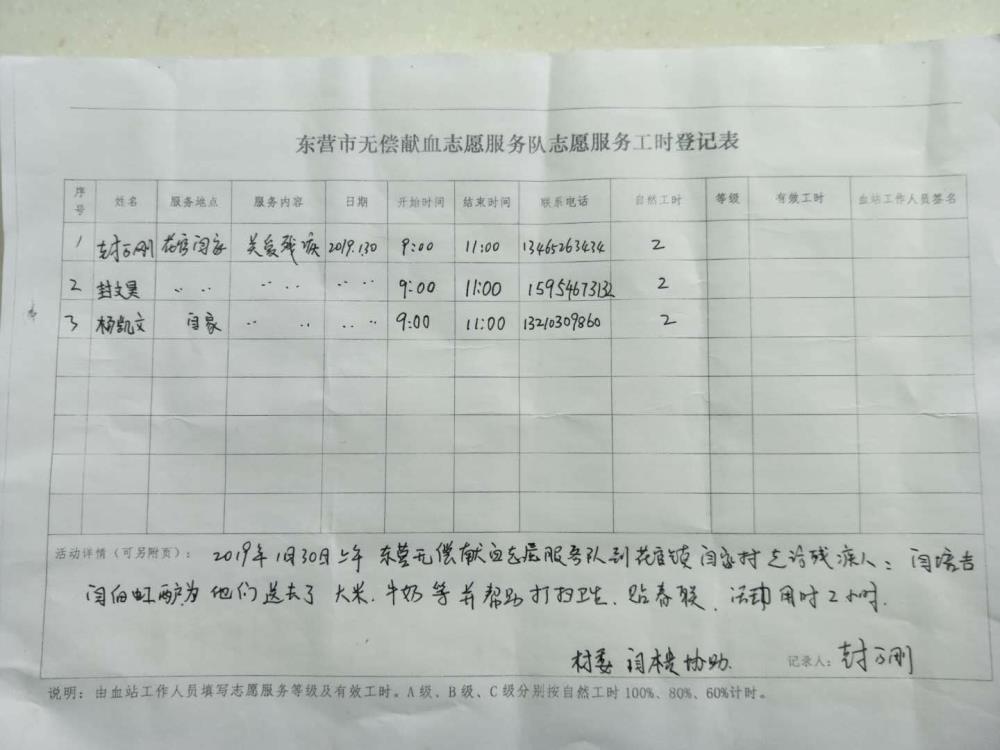 东营市无偿献血志愿服务队志愿服务工时登记表
序号 姓名 服务地点 服务内容 日期 开始时间 结束时间 联系电话 自然工时 等级 有效工时 血站工作人员签名
1 封万刚 花官闫家 关爱残疾 2019.1.30 9:00 11:00 13465263434 2
2 封文昊 〃 〃 〃 〃 〃 〃 9:00 11:00 15954673132 2
3 杨凯文 闫家 〃 〃 〃 〃 9:00 11:00 13210309860 2
活动详情(可另附页): 2019年1月30日上午 东营无偿献血志愿服务队到花官镇闫家村走访残疾人: 闫培吉
闫伯虹两户为他们送去了大米.牛奶等并帮助打扫卫生.贴春联.活动用时2小时.
村委 闫 协助. 记录人: 封万刚
说明: 由血站工作人员填写志愿服务等级及有效工时。A级、B级、C级分别按自然工时100%、80%、60%计时。